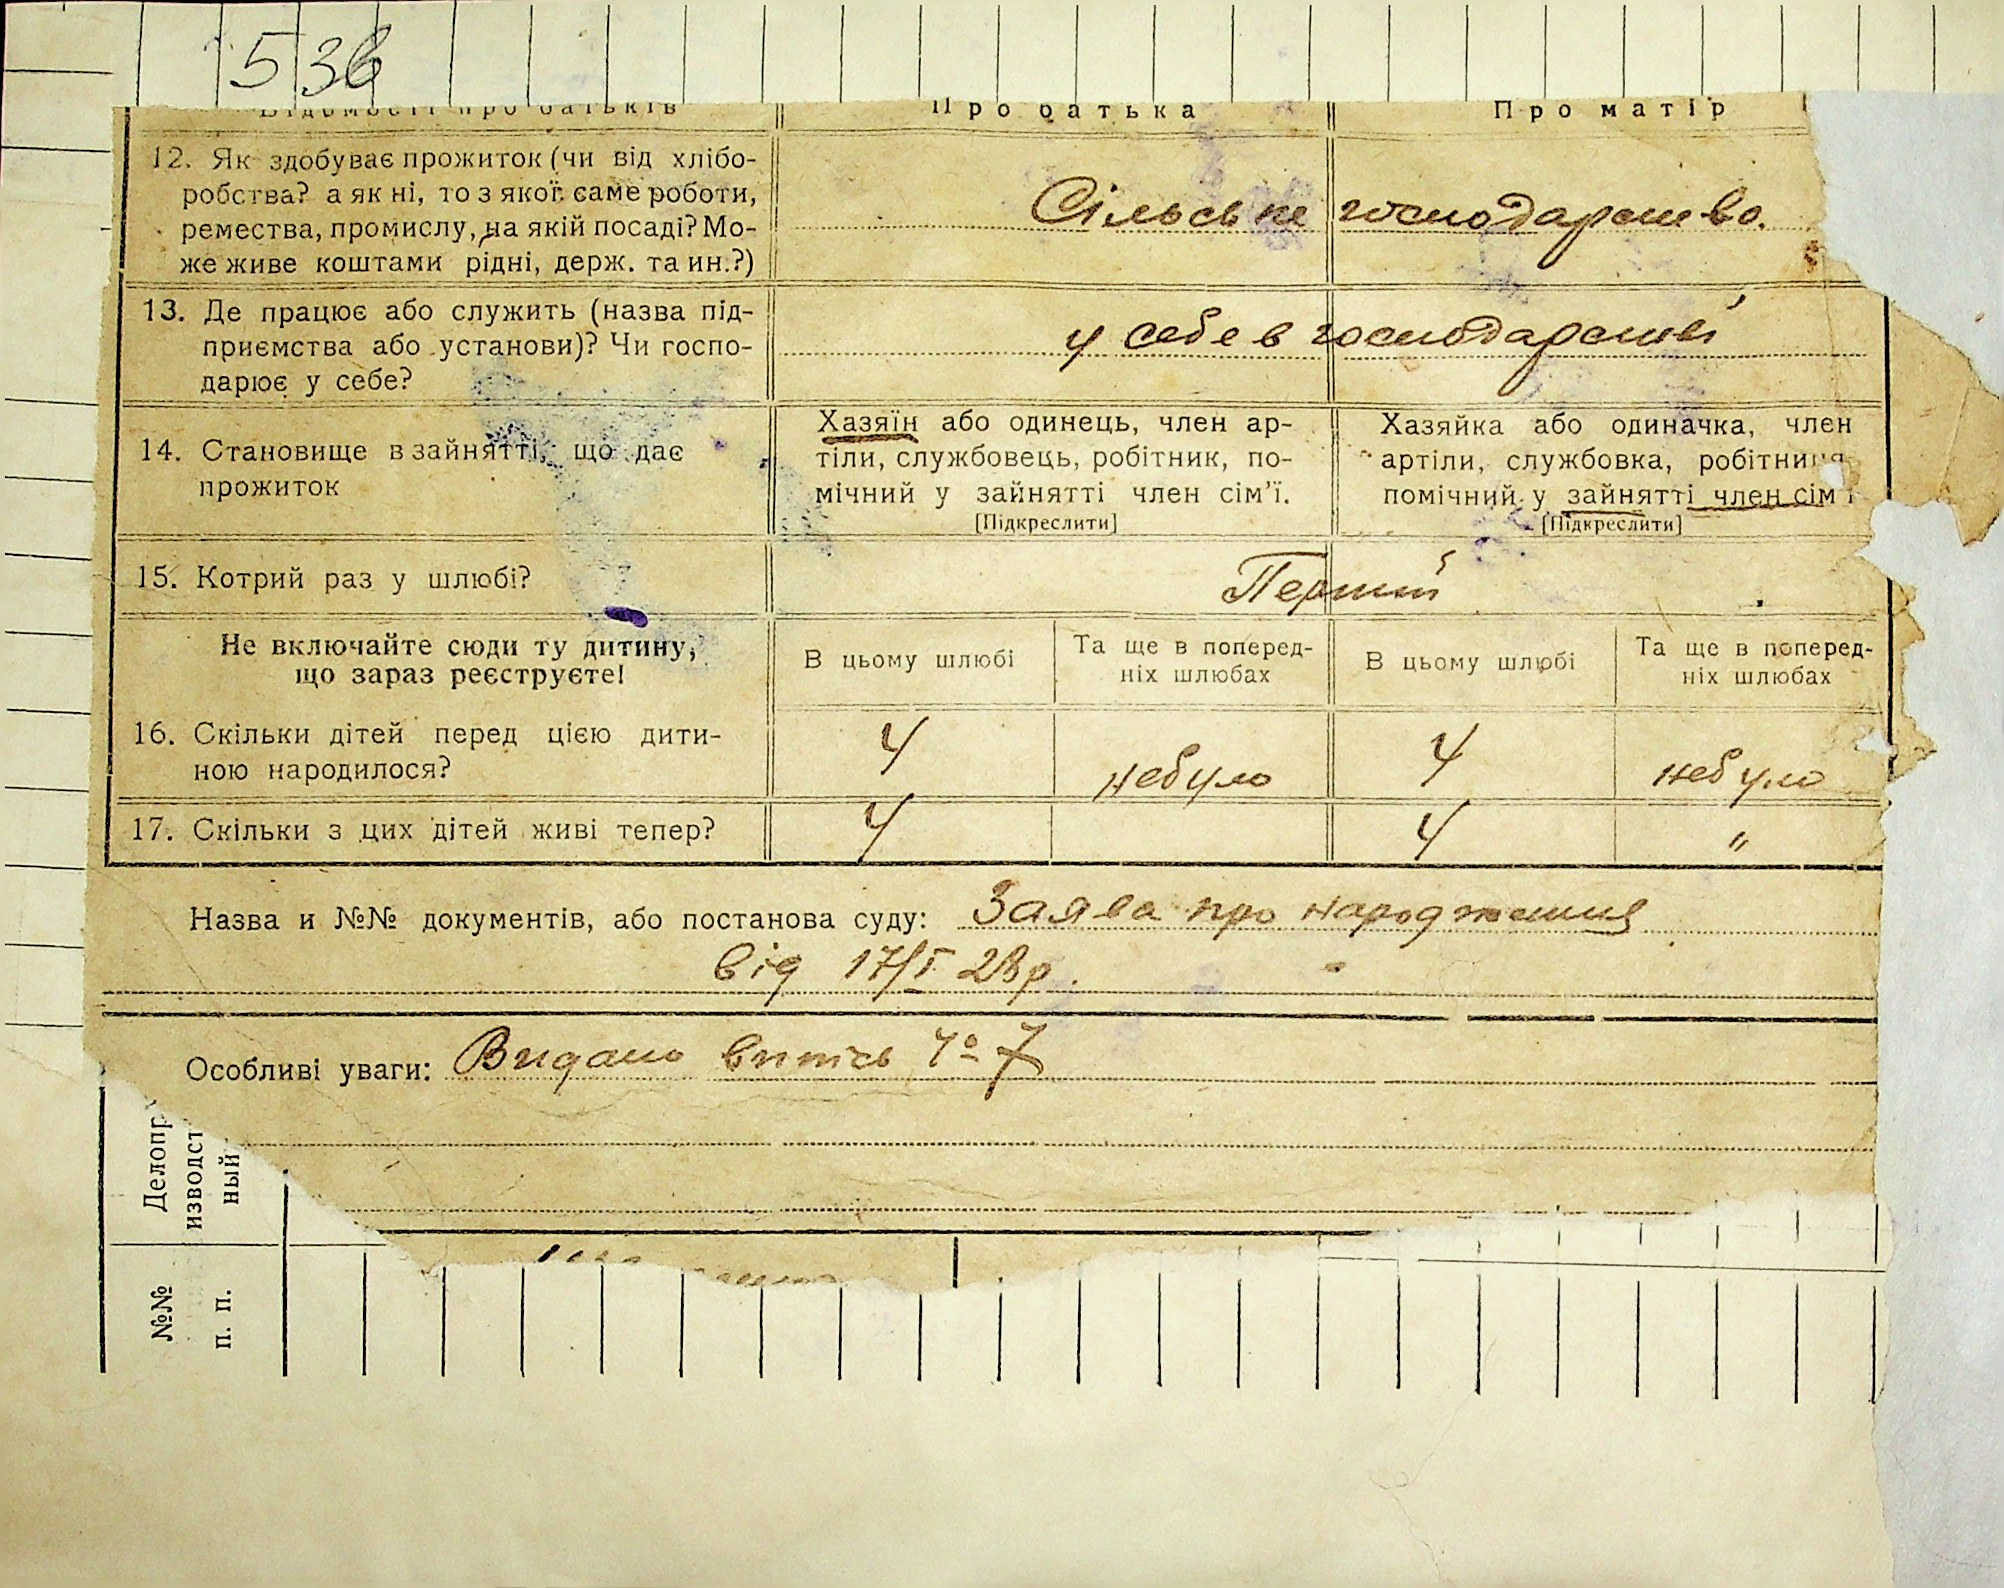 53в
Відомості про батьків Про батька Про матір
12. Як здобуває прожиток (чи від хлібо-
робства? а як ні, то з якої саме роботи,
ремества, промислу, на якій посаді? Мо-
же живе коштами рідні, держ. та ин.?)
Сільське господарство.
13. Де працює або служить (назва під-
приємства або установи)? Чи госпо-
дарює у себе?
у себе в господарстві
14. Становище в зайнятті, що дає
прожиток
Хазяїн або одинець, член ар-
тіли, службовець, робітник, по-
мічний у зайнятті член сім'ї.
[Підкреслити]
Хазяйка або одиначка, член
артіли, службовка, робітниця
помічний у зайнятті член сім'ї
[Підкреслити]
15. Котрий раз у шлюбі?
Перший
Не включайте сюди ту дитину,
що зараз реєструєте!
В цьому шлюбі
Та ще в поперед-
ніх шлюбах
В цьому шлюбі
Та ще в поперед-
ніх шлюбах
16. Скільки дітей перед цією дити-
ною народилося?
4 небуло 4 небуло
17. Скільки з цих дітей живі тепер? 4 4 "
Назва и №№ документів, або постанова суду: Заява про народження
від 17/I 28р.
Особливі уваги: Видано витпсь Ч° 7
Делопр
изводст
ный
№№
п. п.